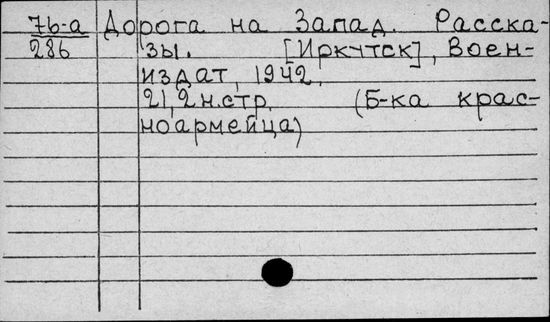 76-а Дорога на Запад. Расска-
286 зы. [Иркутск], Воен-
издат, 1942.
21,2 н.стр. (Б-ка крас-
ноармейца)